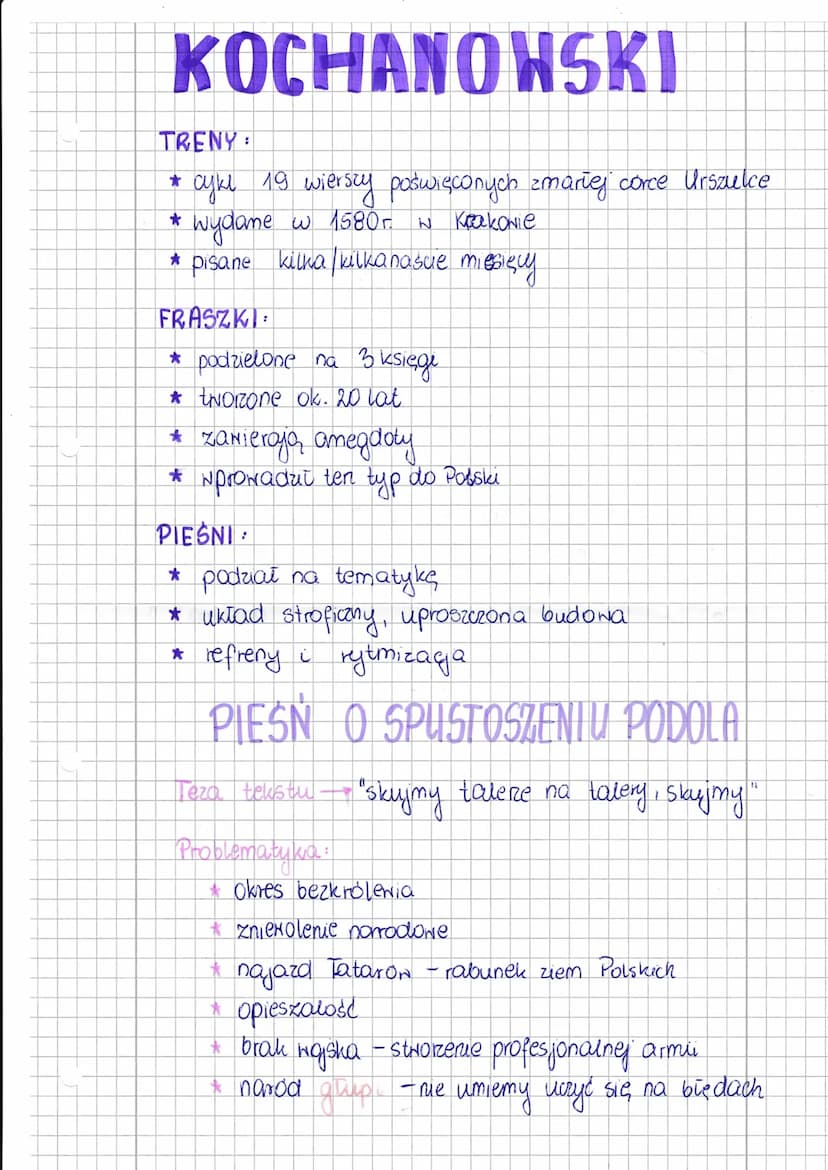 KOCHANOWSKI
TRENY:
* cykl 19 wierszy poświęconych zmarłej córce Urszulce
* wydane w 1580r. w Krakowie
* pisane kilka/kilkanaście miesięcy
FRASZKI:
* podzielone na 3 księgi
* tworzone ok. 20 lat
* zawierają anegdoty
* wprowadził ten typ do Polski
PIEŚNI:
* podział na tematykę
* układ stroficzny, uproszczona budowa
* refreny i rytmizacja
PIEŚŃ O SPUSTOSZENIU PODOLA
Teza tekstu → "skujmy talerze na talery, skujmy"
Problematyka:
* okres bezkrólewia
* zniewolenie narodowe
* najazd Tatarów - rabunek ziem Polskich
* opieszałość
* brak wojska - stworzenie profesjonalnej armii
* naród głupi - nie umiemy uczyć się na błędach